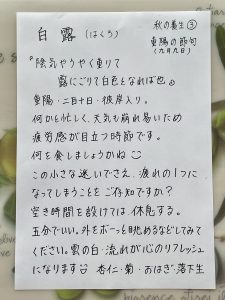 秋の養生③
白露(はくろ)
重陽の節句
(九月九日)
"陰気やうやく重りて
露にごりて白色となれば也"
重陽・二百十日・彼岸入り。
何かと忙しく、天気も崩れ易いため
疲労感が目立つ時節です。
何を食しましょうかね
この小さな迷いでさえ、疲れの1つに
なってしまうことをご存知ですか?
空き時間を設けては、休息する。
五分でいい。外をボーッと眺めるなどしてみて
ください。雲の白・流れが心のリフレッシュ
になります 杏仁・菊・おはぎ・落下生